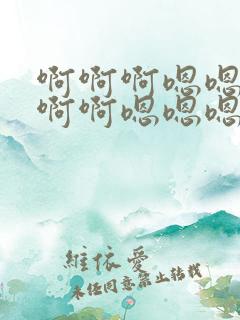 啊啊啊嗯嗯
啊啊嗯嗯嗯
維依愛
未任同意禁止转载